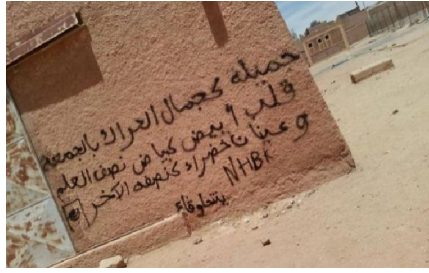 جميله كجمال الحراك بالجمعه
قلب أبيض كبياض نصف العلم
وعينان خضراء كنصفه الآخر
NHBK